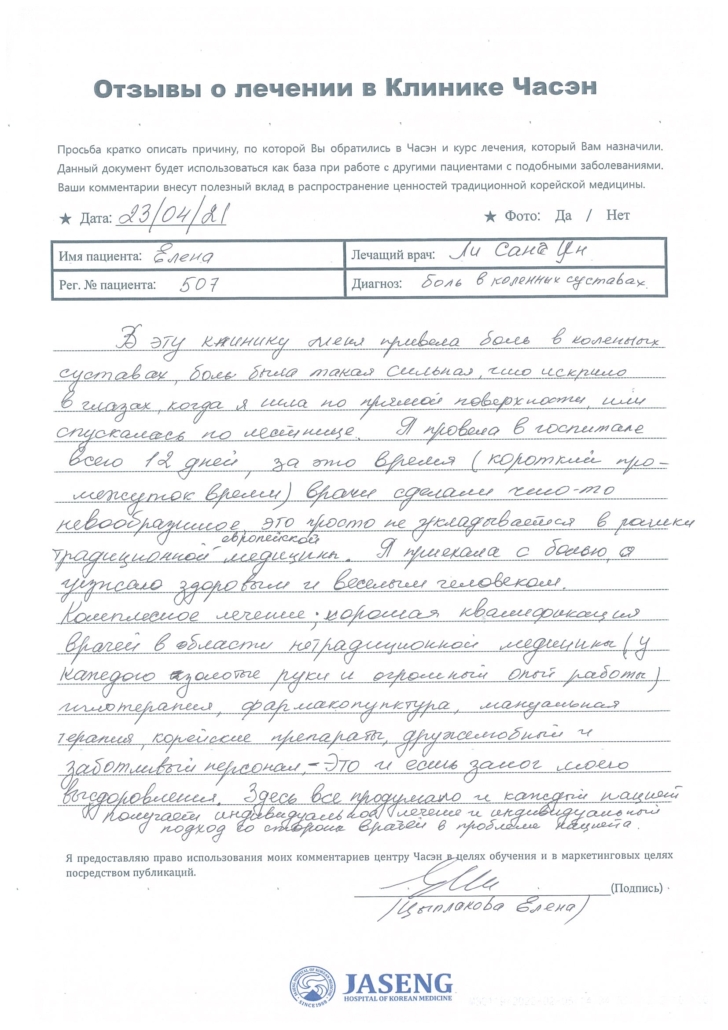 Отзывы о лечении в Клинике Часэн
Просьба кратко описать причину, по которой Вы обратились в Часэн и курс лечения, который Вам назначили.
Данный документ будет использоваться как база при работе с другими пациентами с подобными заболеваниями.
Ваши комментарии внесут полезный вклад в распространение ценностей традиционной корейской медицины.
★ Дата: 23/04/21 ★ Фото: Да / Нет
Имя пациента: Елена Лечащий врач: Ли Санг Ун
Рег. № пациента: 507 Диагноз: боль в коленных суставах.
В эту клинику меня привела боль в коленных
суставах, боль была такая сильная, что искрило
в глазах, когда я шла по прямой поверхности, или
спускалась по лестнице. Я провела в госпитале
всего 12 дней, за это время (короткий про-
межуток времени) врачи сделали что-то
невообразимое, это просто не укладывается в рамки
традиционной европейской медицины. Я приехала с болью, а
уезжаю здоровым и веселым человеком.
Комплесное лечение, хорошая квалификация
врачей в области нетрадиционной медицины (у
каждого золотые руки и огромный опыт работы)
иглотерапия, фармакопунктура, мануальная
терапия, корейские препараты, дружелюбный и
заботливый персонал, - Это и есть залог моего
выздоровления. Здесь все продумано и каждый пациент
получает индивидуальное лечение и индивидуальный
подход со стороны врачей в проблеме пациента.
Я предоставляю право использования моих комментариев центру Часэн в целях обучения и в маркетинговых целях
посредством публикаций.
(Подпись)
(Цыплакова Елена)
JASENG
HOSPITAL OF KOREAN MEDICINE